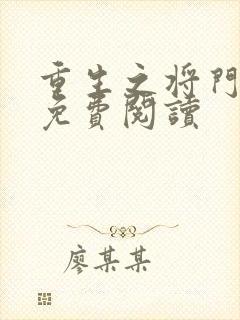 重生之将門
免費閱讀
廖某某